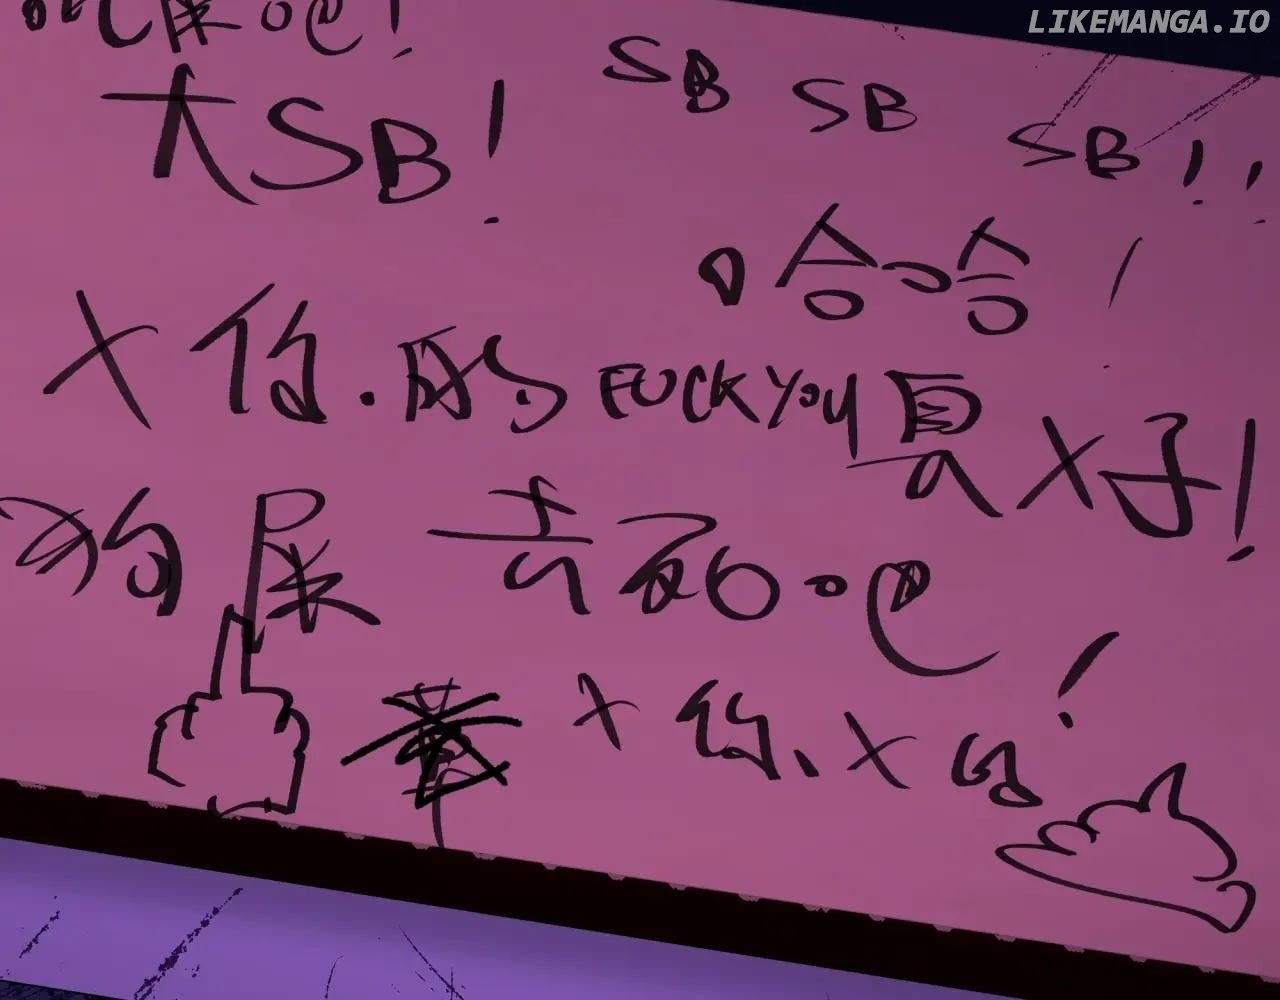 LIKEMANGA.IO
吃屎吧!
大SB! SB SB SB!!
哈哈!
X你.的 FUCK YOU 真X子!
狗屎 去死吧!
X你、X的